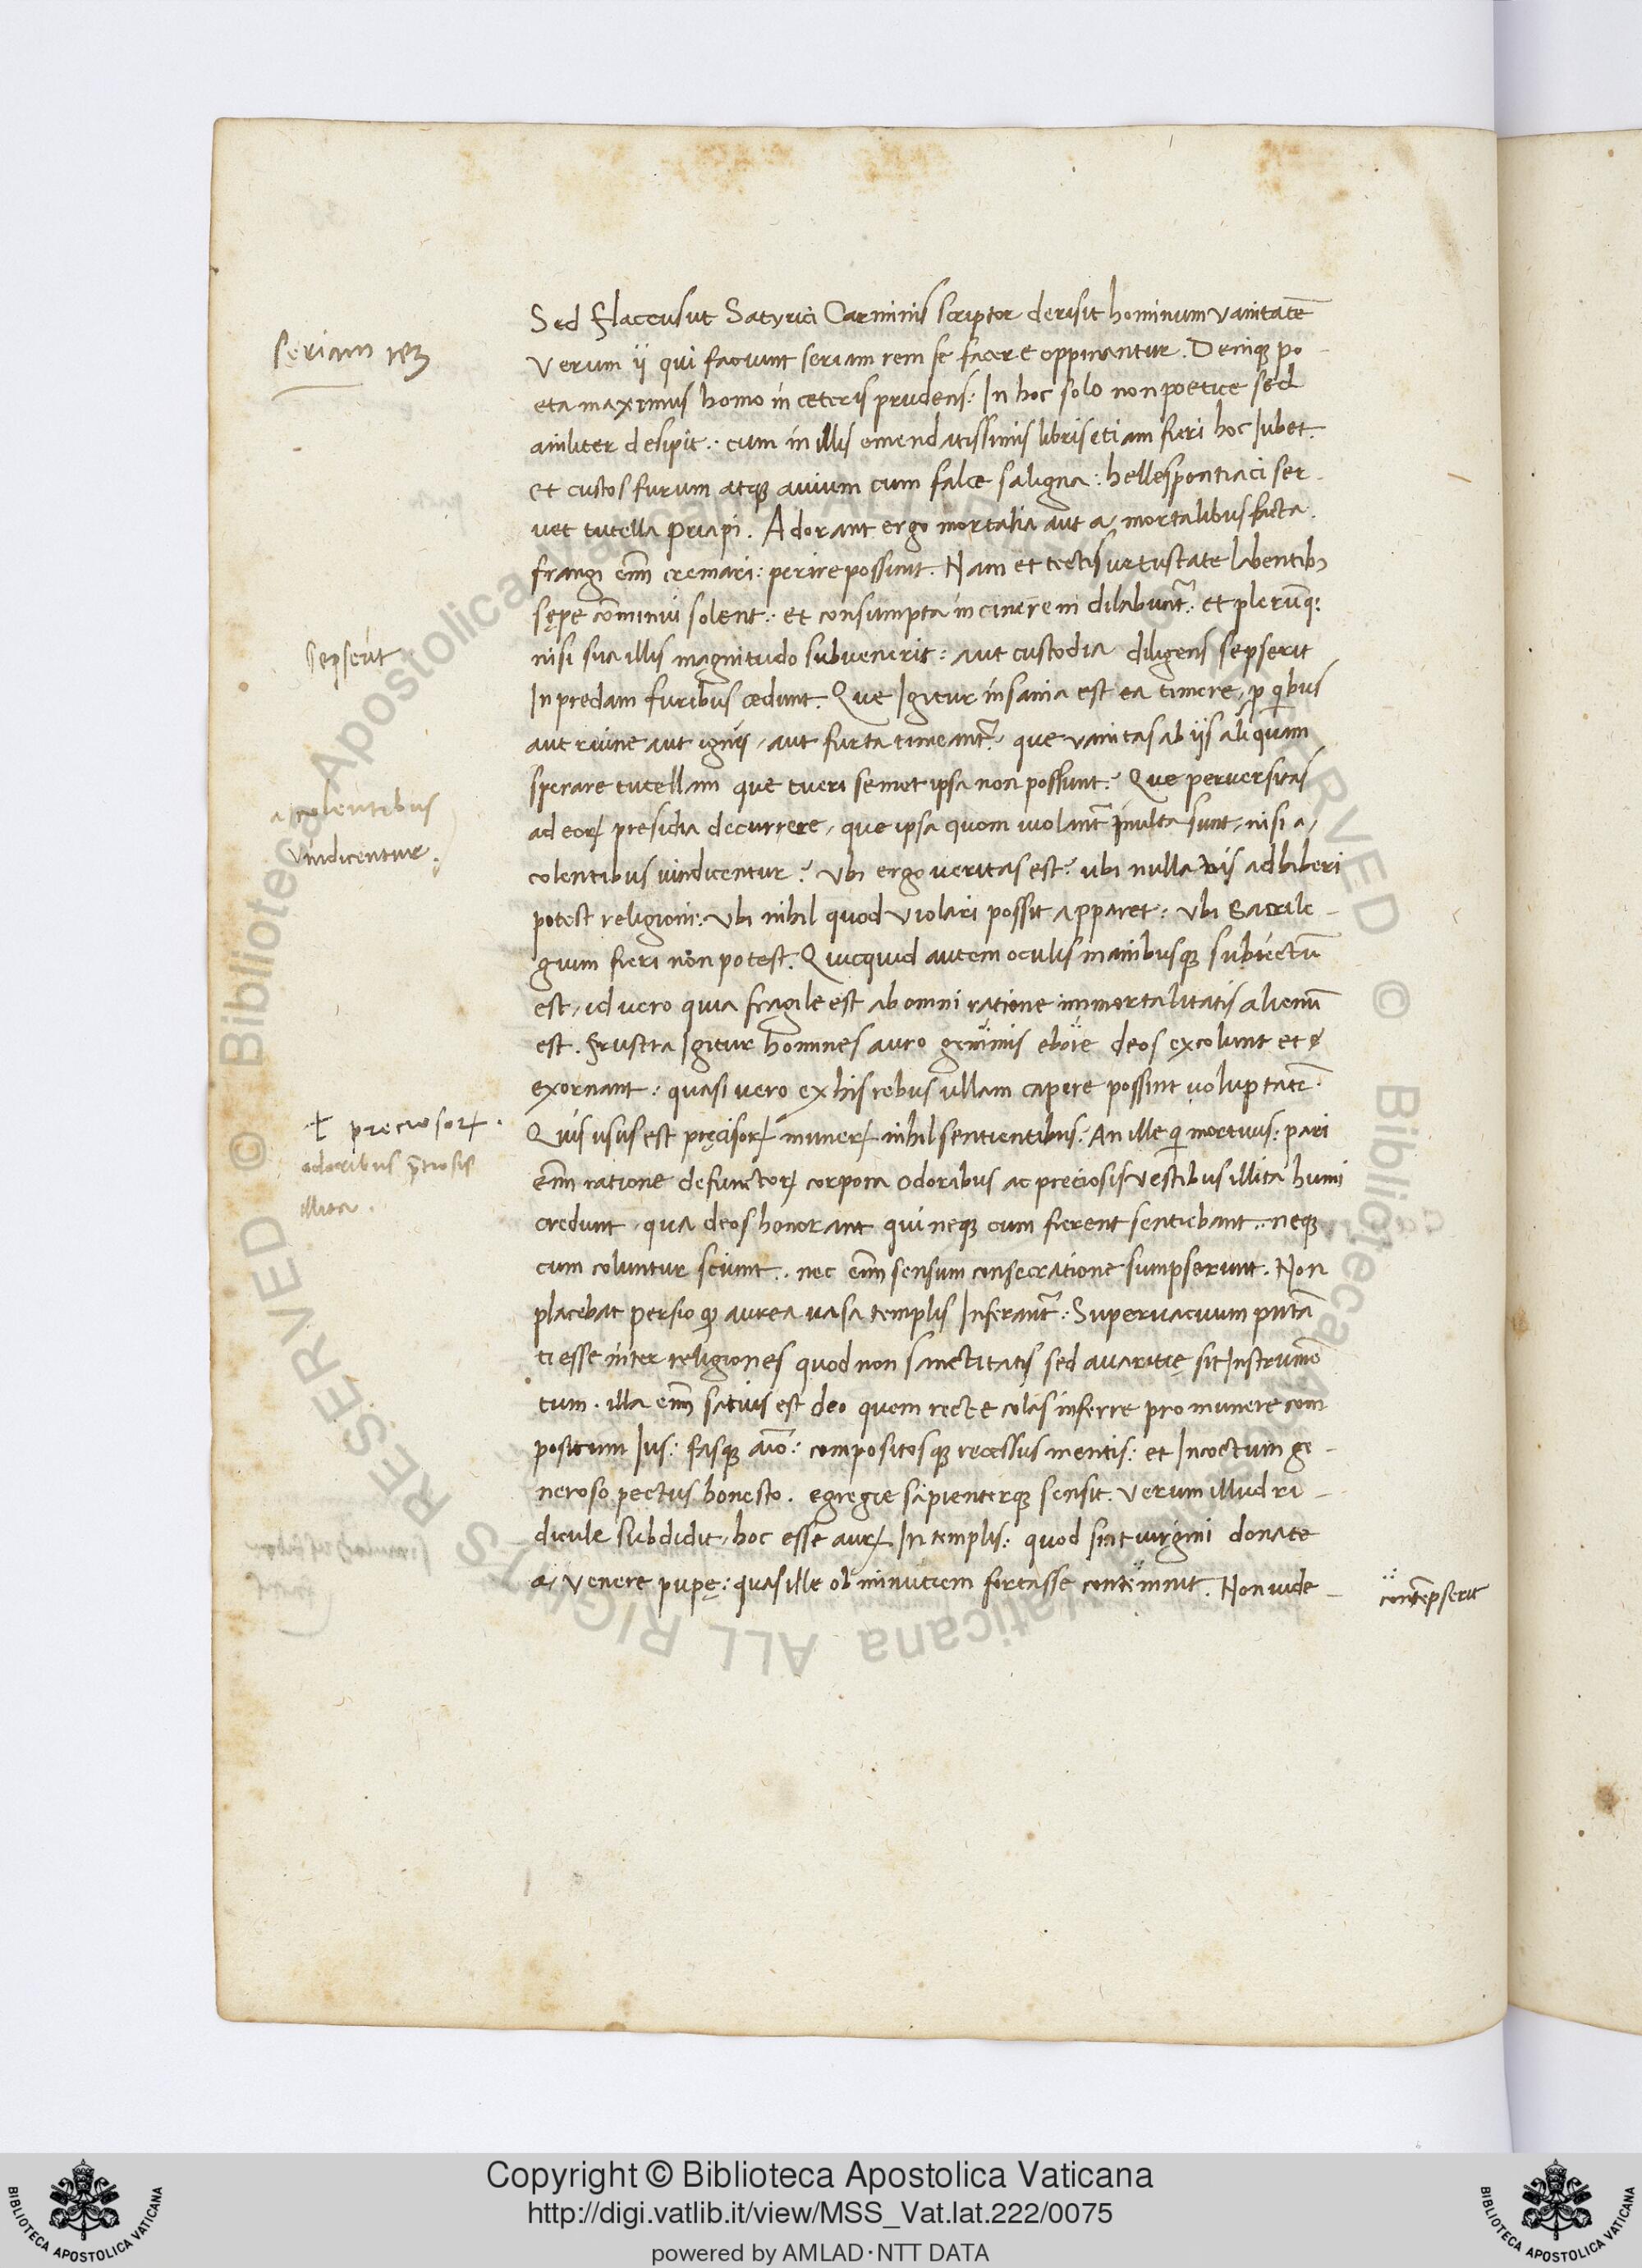 Sed flaccus ut Satyrici Carminis scriptor derisit hominum vanitatē
seriam rē
Verum ij qui faciunt seriam rem se facere oppinantur. Deniqꝫ po-
eta maximus homo in ceteris prudens: In hoc solo non poetice sed
aniliter desipit: cum in illis emendatissimis libris etiam fieri hoc Iubet.
et custos furum atqꝫ avium cum falce saligna: hellespontiaci ser-
vet tutella priapi. Adorant ergo mortalia aut a mortalibus facta.
frangi enī cremari: perire possunt. Nam et tectis vetustate labentibꝫ
sępe cōminui solent: et consumpta incinere in dilabunt̃: et plerūqꝫ
sepserit
nisi sua illis magnitudo subvenerit: aut custodia diligens sepserit
In predam furibus cedunt. Que Igitur insania est ea timere, ꝓ qibus
aut ruine aut ignis, aut furta timeant̃? que vanitas ab ijs aliquam
sperare tutellam que tueri semet ipsa non possunt? Que perversitas
a colentibus
ad eoꝝ presidia decurrere, que ipsa quom violant̃ inulta sunt, nisi a,
vindicentur.
colentibus vindicentur? Vbi ergo veritas est? ubi nulla vis adhiberi
potest religioni: Vbi nihil quod violari possit apparet: Vbi Sacrile-
gium fieri non potest. Quicquid autem oculis manibusqꝫ subiectū
est, id vero quia fragile est ab omni ratione immortalitatis alienū
est. frustra Igitur homines auro gemmis ebore deos excolunt et
exornant: quasi vero ex his rebus ullam capere possint voluptatē.
+ preciosoꝝ.
Quis usus est pręcisoꝝ muneꝝ nihil sentientibus? An ille qi mortuus: pari
odoribus p̄tiosis
enī ratione defunctoꝝ corpora odoribus ac preciosis vestibus illita humi
illita.
credunt, qua deos honorant qui neqꝫ cum fierent sentiebant: neqꝫ
cum coluntur sciunt: nec enī sensum consecratione sumpserunt. Non
placebat persio qꝫ aurea vasa templis Inferant̃: Supervacuum putā
ti esse inter religiones quod non sanctitatis sed avaritię sit Instrumē
tum. illa enī satius est deo quem recte colas inferre pro munere com
positum Ius: fasqꝫ aīo: compositosqꝫ recessus mentis: et Incoctum ge-
neroso pectus honesto. egregie sapienterqꝫ sensit. Verum illud ri-
dicule subdidit, hoc esse auꝝ In templis: quod sint virgini donate
a, Venere pupę: quas ille ob minutiem fortasse contēmnit. Non vide-
contēpserit
Copyright © Biblioteca Apostolica Vaticana
http://digi.vatlib.it/view/MSS_Vat.lat.222/0075
powered by AMLAD·NTT DATA
BIBLIOTECA APOSTOLICA VATICANA
BIBLIOTECA APOSTOLICA VATICANA